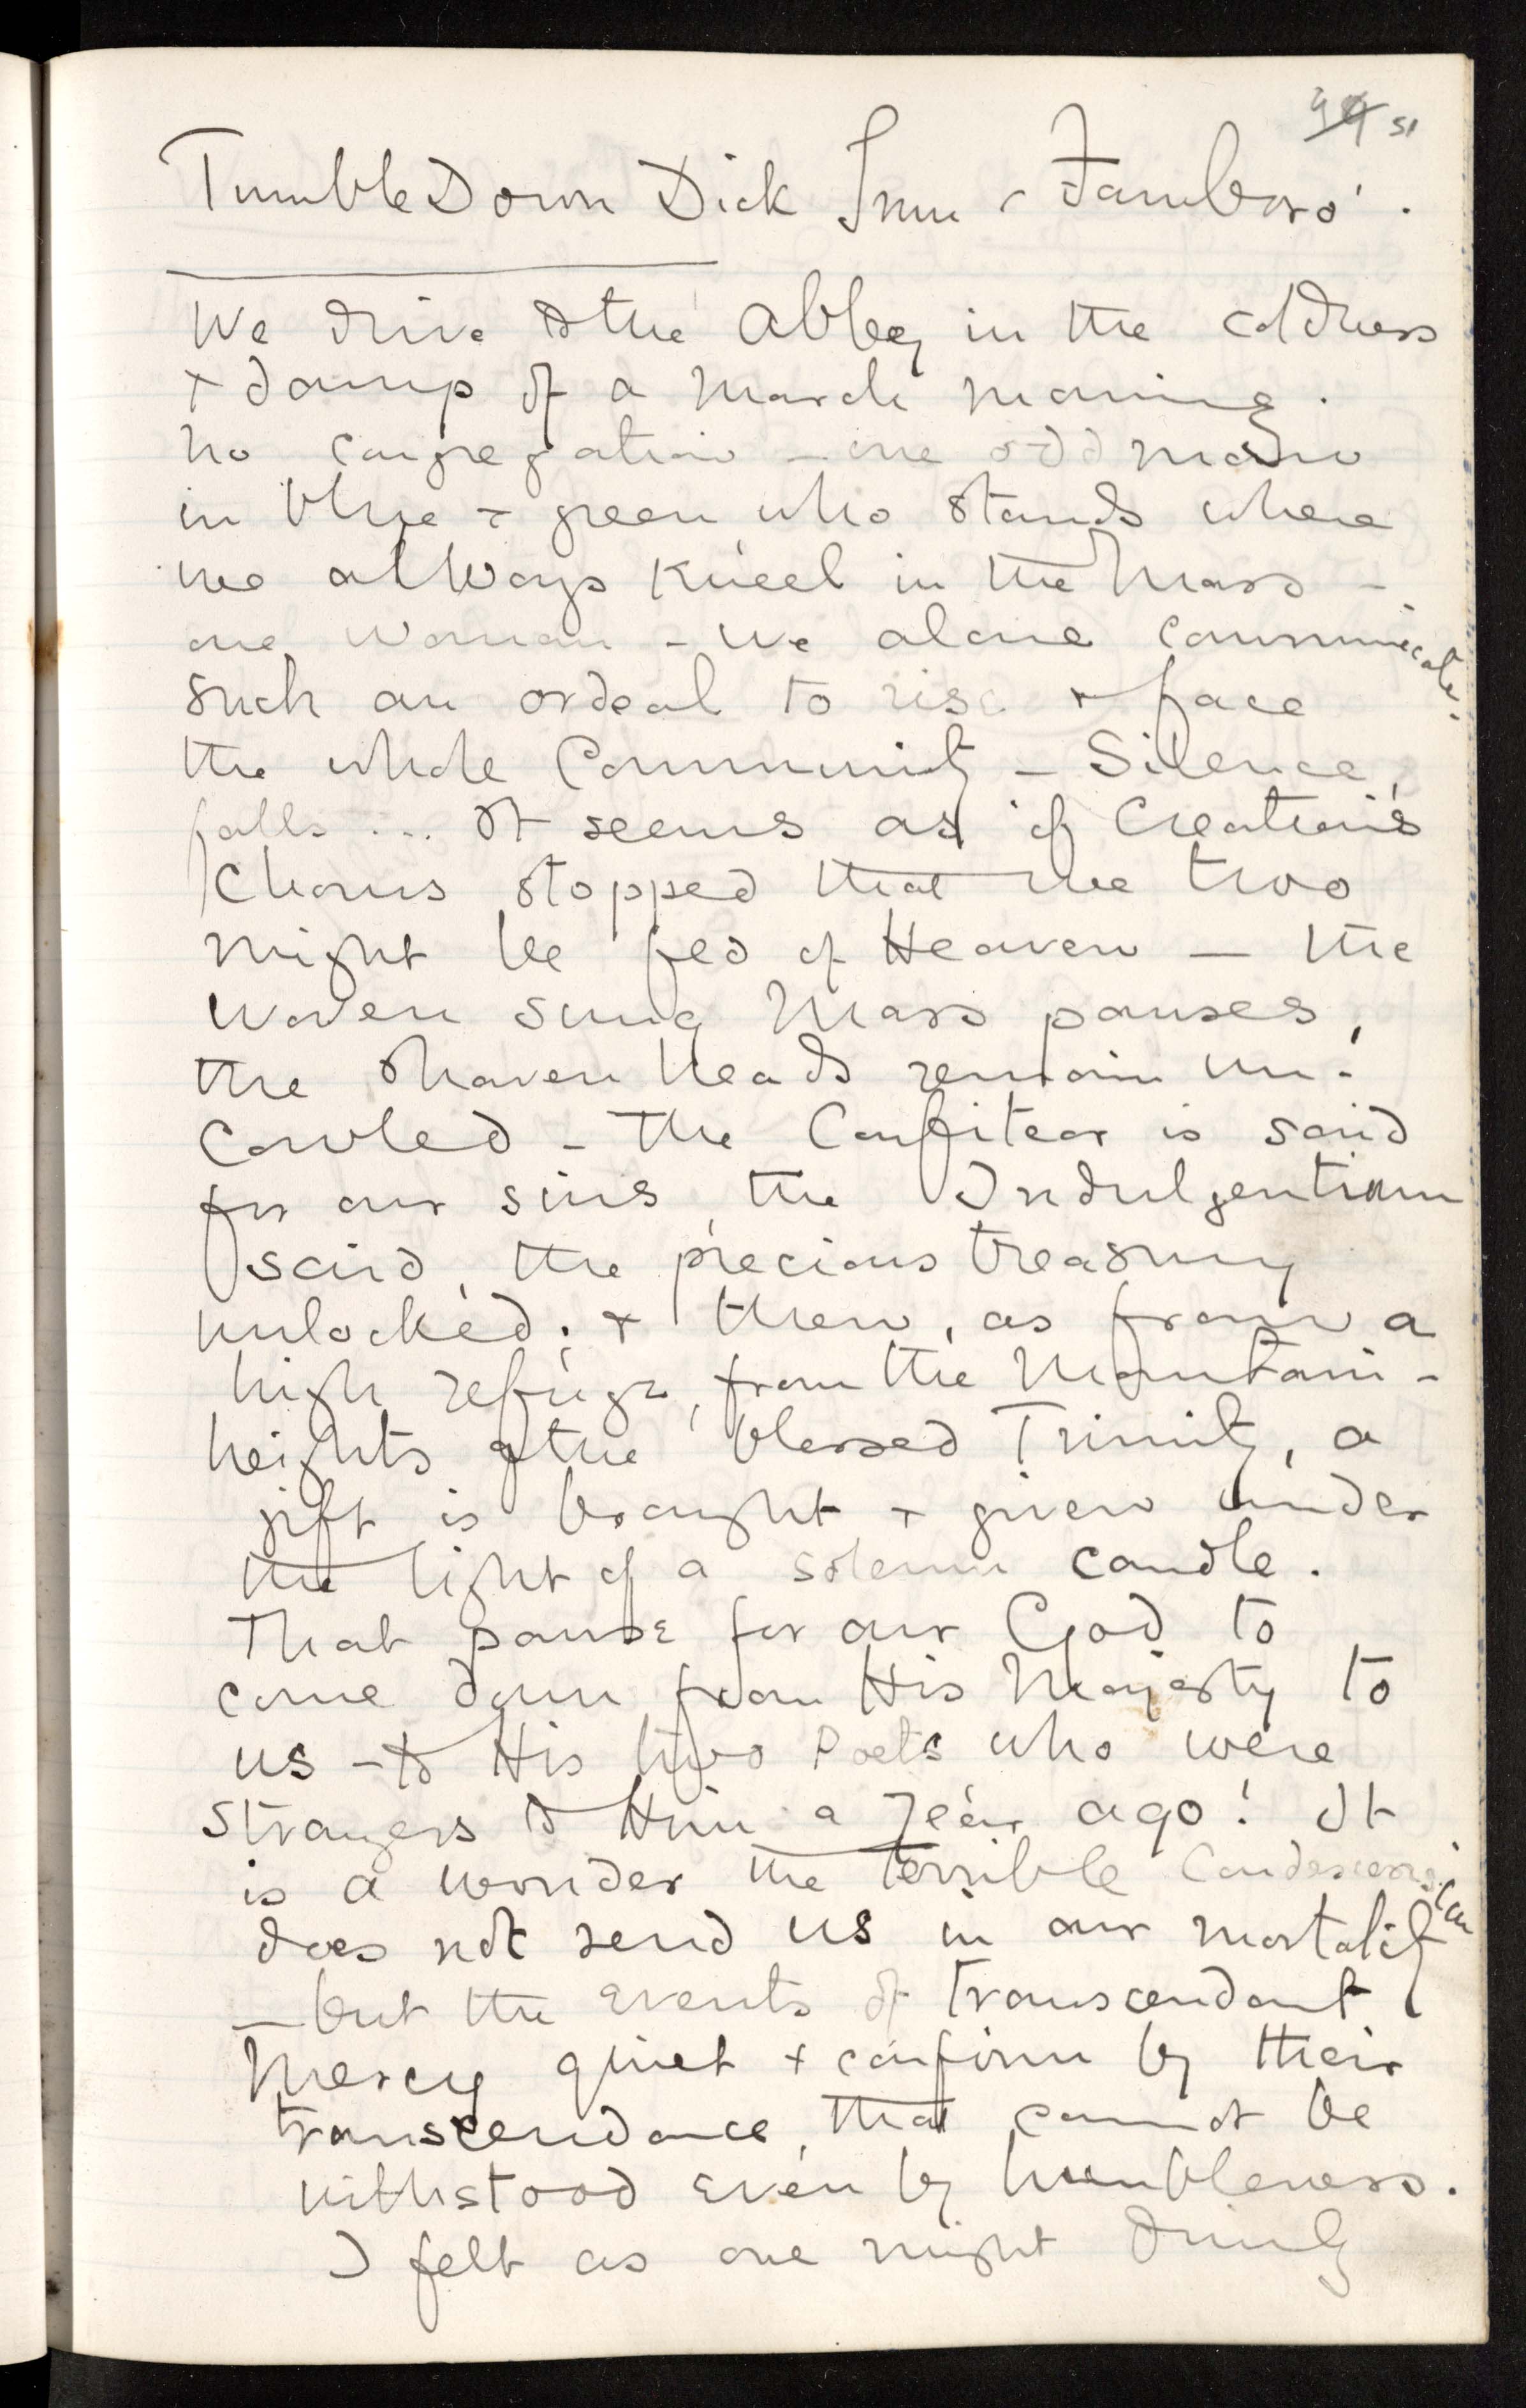 51
TumbleDown Dick Inn - Farnboro'.
We drive to the Abbey in the coldness
+ damp of a March morning.
No congregation - one odd man
in blue + green who stands where
we always kneel in the Mass -
one woman - We alone communicate.
Such an ordeal to rise + face
the whole Community - Silence
falls ... It seems as if Creation's
Chorus stopped that we two
might be fed of Heaven — the
woven sung Mass pauses,
the shaven heads remain un-
cowled - The Confiteor is said
for our sins, the Indulgentiam
said, the precious treasury
unlocked; + then, as from a
high refuge, from the Mountain-
heights of the blessed Trinity, a
gift is brought + given under
the light of a solemn candle.
That pause for our God to
come down from His Majesty to
us - to His two Poets who were
strangers to Him a year ago! It
is a wonder the terrible Condescension
does not rend us in our mortality
- but the events of transcendant
Mercy quiet + confirm by their
transcendance, that cannot be
withstood even by humbleness.
I felt as one might dimly